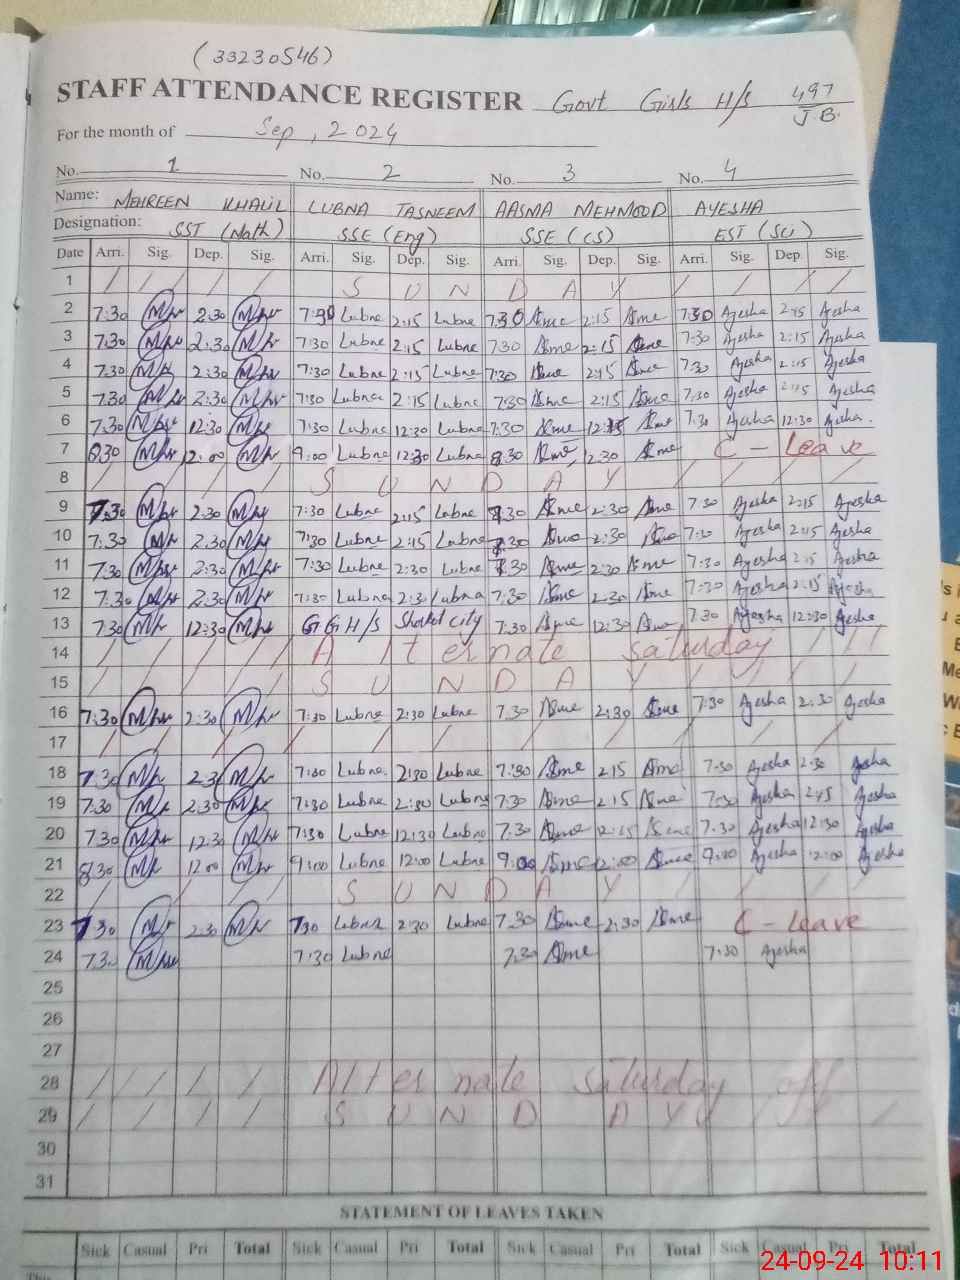 (33230546)
STAFF ATTENDANCE REGISTER Govt Girls H/S 497/J.B.
For the month of Sep, 2024
No. 1 No. 2 No. 3 No. 4
Name: MEHREEN KHALIL LUBNA TASNEEM AASMA MEHMOOD AYESHA
Designation: SST (Math) SSE (Eng) SSE (CS) EST (Sci)
Date Arri. Sig. Dep. Sig. Arri. Sig. Dep. Sig. Arri. Sig. Dep. Sig. Arri. Sig. Dep. Sig.
1 S U N D A Y
2 7:30 2:30 7:30 Lubna 2:15 Lubna 7:30 Asme 2:15 Asme 7:30 Ayesha 2:15 Ayesha
3 7:30 2:30 7:30 Lubna 2:15 Lubna 7:30 Asme 2:15 Asme 7:30 Ayesha 2:15 Ayesha
4 7:30 2:30 7:30 Lubna 2:15 Lubna 7:30 Asme 2:15 Asme 7:30 Ayesha 2:15 Ayesha
5 7:30 2:30 7:30 Lubna 2:15 Lubna 7:30 Asme 2:15 Asme 7:30 Ayesha 2:15 Ayesha
6 7:30 12:30 7:30 Lubna 12:30 Lubna 7:30 Asme Asme 7:30 Ayesha 12:30 Ayesha.
7 8:30 12:00 9:00 Lubna 12:30 Lubna 8:30 Asme 12:30 Asme C - Leave
8 S U N D A Y
9 7:30 2:30 7:30 Lubna 2:15 Lubna 30 Asme 2:30 Asme 7:30 Ayesha 2:15 Ayesha
10 7:30 2:30 7:30 Lubna 2:15 Lubna 30 Asme 2:30 Asme 7:30 Ayesha 2:15 Ayesha
11 7:30 2:30 7:30 Lubna 2:30 Lubna 30 Asme 2:30 Asme 7:30 Ayesha 2:15 Ayesha
12 7:30 2:30 7:30 Lubna 2:30 Lubna 7:30 Asme 2:30 Asme 7:30 Ayesha 2:15 Ayesha
13 7:30 12:30 GG H/S Shorkot city 7:30 Asme 12:30 Asme 7:30 Ayesha 12:30 Ayesha
14 Alternate saturday
15 S U N D A Y
16 7:30 2:30 7:30 Lubna 2:30 Lubna 7:30 Asme 2:30 Asme 7:30 Ayesha 2:30 Ayesha
17
18 7:30 2:30 7:30 Lubna. 2:30 Lubna 7:30 Asme 2:15 Asme 7:30 Ayesha 2:30 Ayesha
19 7:30 2:30 7:30 Lubna 2:30 Lubna 7:30 Asme 2:15 Asme 7:30 Ayesha 2:45 Ayesha
20 7:30 12:30 7:30 Lubna 12:30 Lubna 7:30 Asme 12:15 Asme 7:30 Ayesha 12:30 Ayesha
21 8:30 12:00 9:00 Lubna 12:00 Lubna 9:00 Asme 12:00 Asme 9:00 Ayesha 12:00 Ayesha
22 S U N D A Y
23 7:30 2:30 7:30 Lubna 2:30 Lubna 7:30 Asme 2:30 Asme C - leave
24 7:30 7:30 Lubna 7:30 Asme 7:30 Ayesha
25
26
27
28 Alternate saturday off
29 S U N D A Y
30
31
STATEMENT OF LEAVES TAKEN
Sick Casual Pri Total Sick Casual Pri Total Sick Casual Pri Total Sick Casual Total
24-09-24 10:11